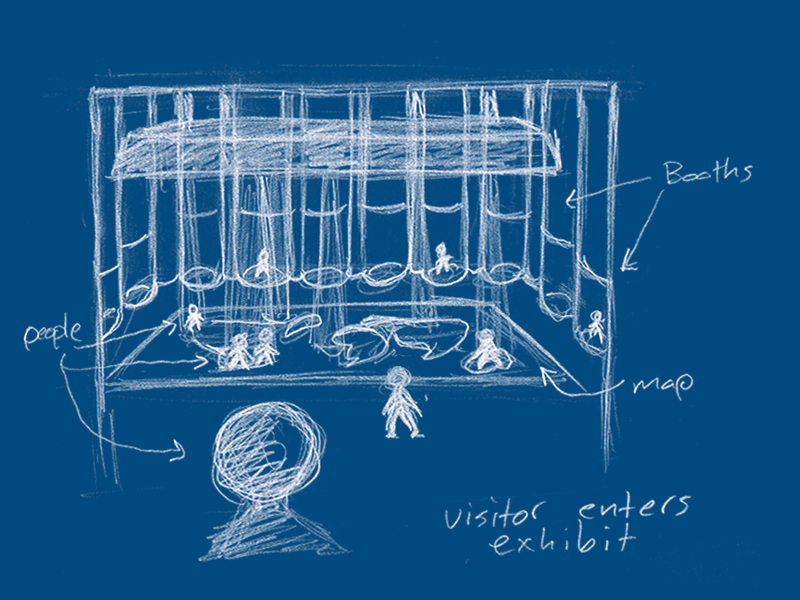 Booths
people
map
visitor enters
exhibit